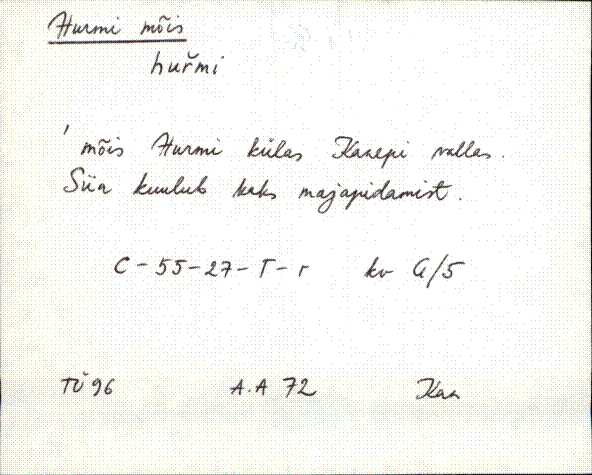 Hurmi mõis
huřmi
' mõis Hurmi külas Kanepi vallas.
Siia kuulub kaks majapidamist.
C-55-27-T-r kv G/5
TÜ 96 A.A 72 Kan